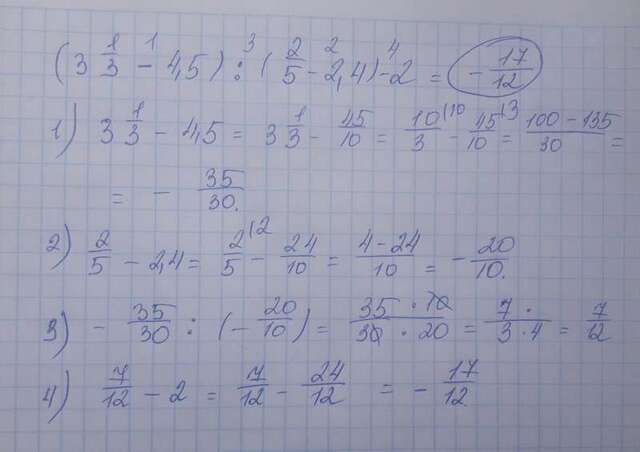 (3 1/3 - 4,5) : (2/5 - 2,4) - 2 = - 17/12
1) 3 1/3 - 4,5 = 3 1/3 - 45/10 = 10/3 (10 - 45/10 (3 = 100 - 135/30 =
= - 35/30.
2) 2/5 - 2,4 = 2/5 (2 - 24/10 = 4 - 24/10 = - 20/10.
3) - 35/30 : (- 20/10) = 35 · 10/30 · 20 = 7 ·/3 · 4 = 7/12
4) 7/12 - 2 = 7/12 - 24/12 = - 17/12